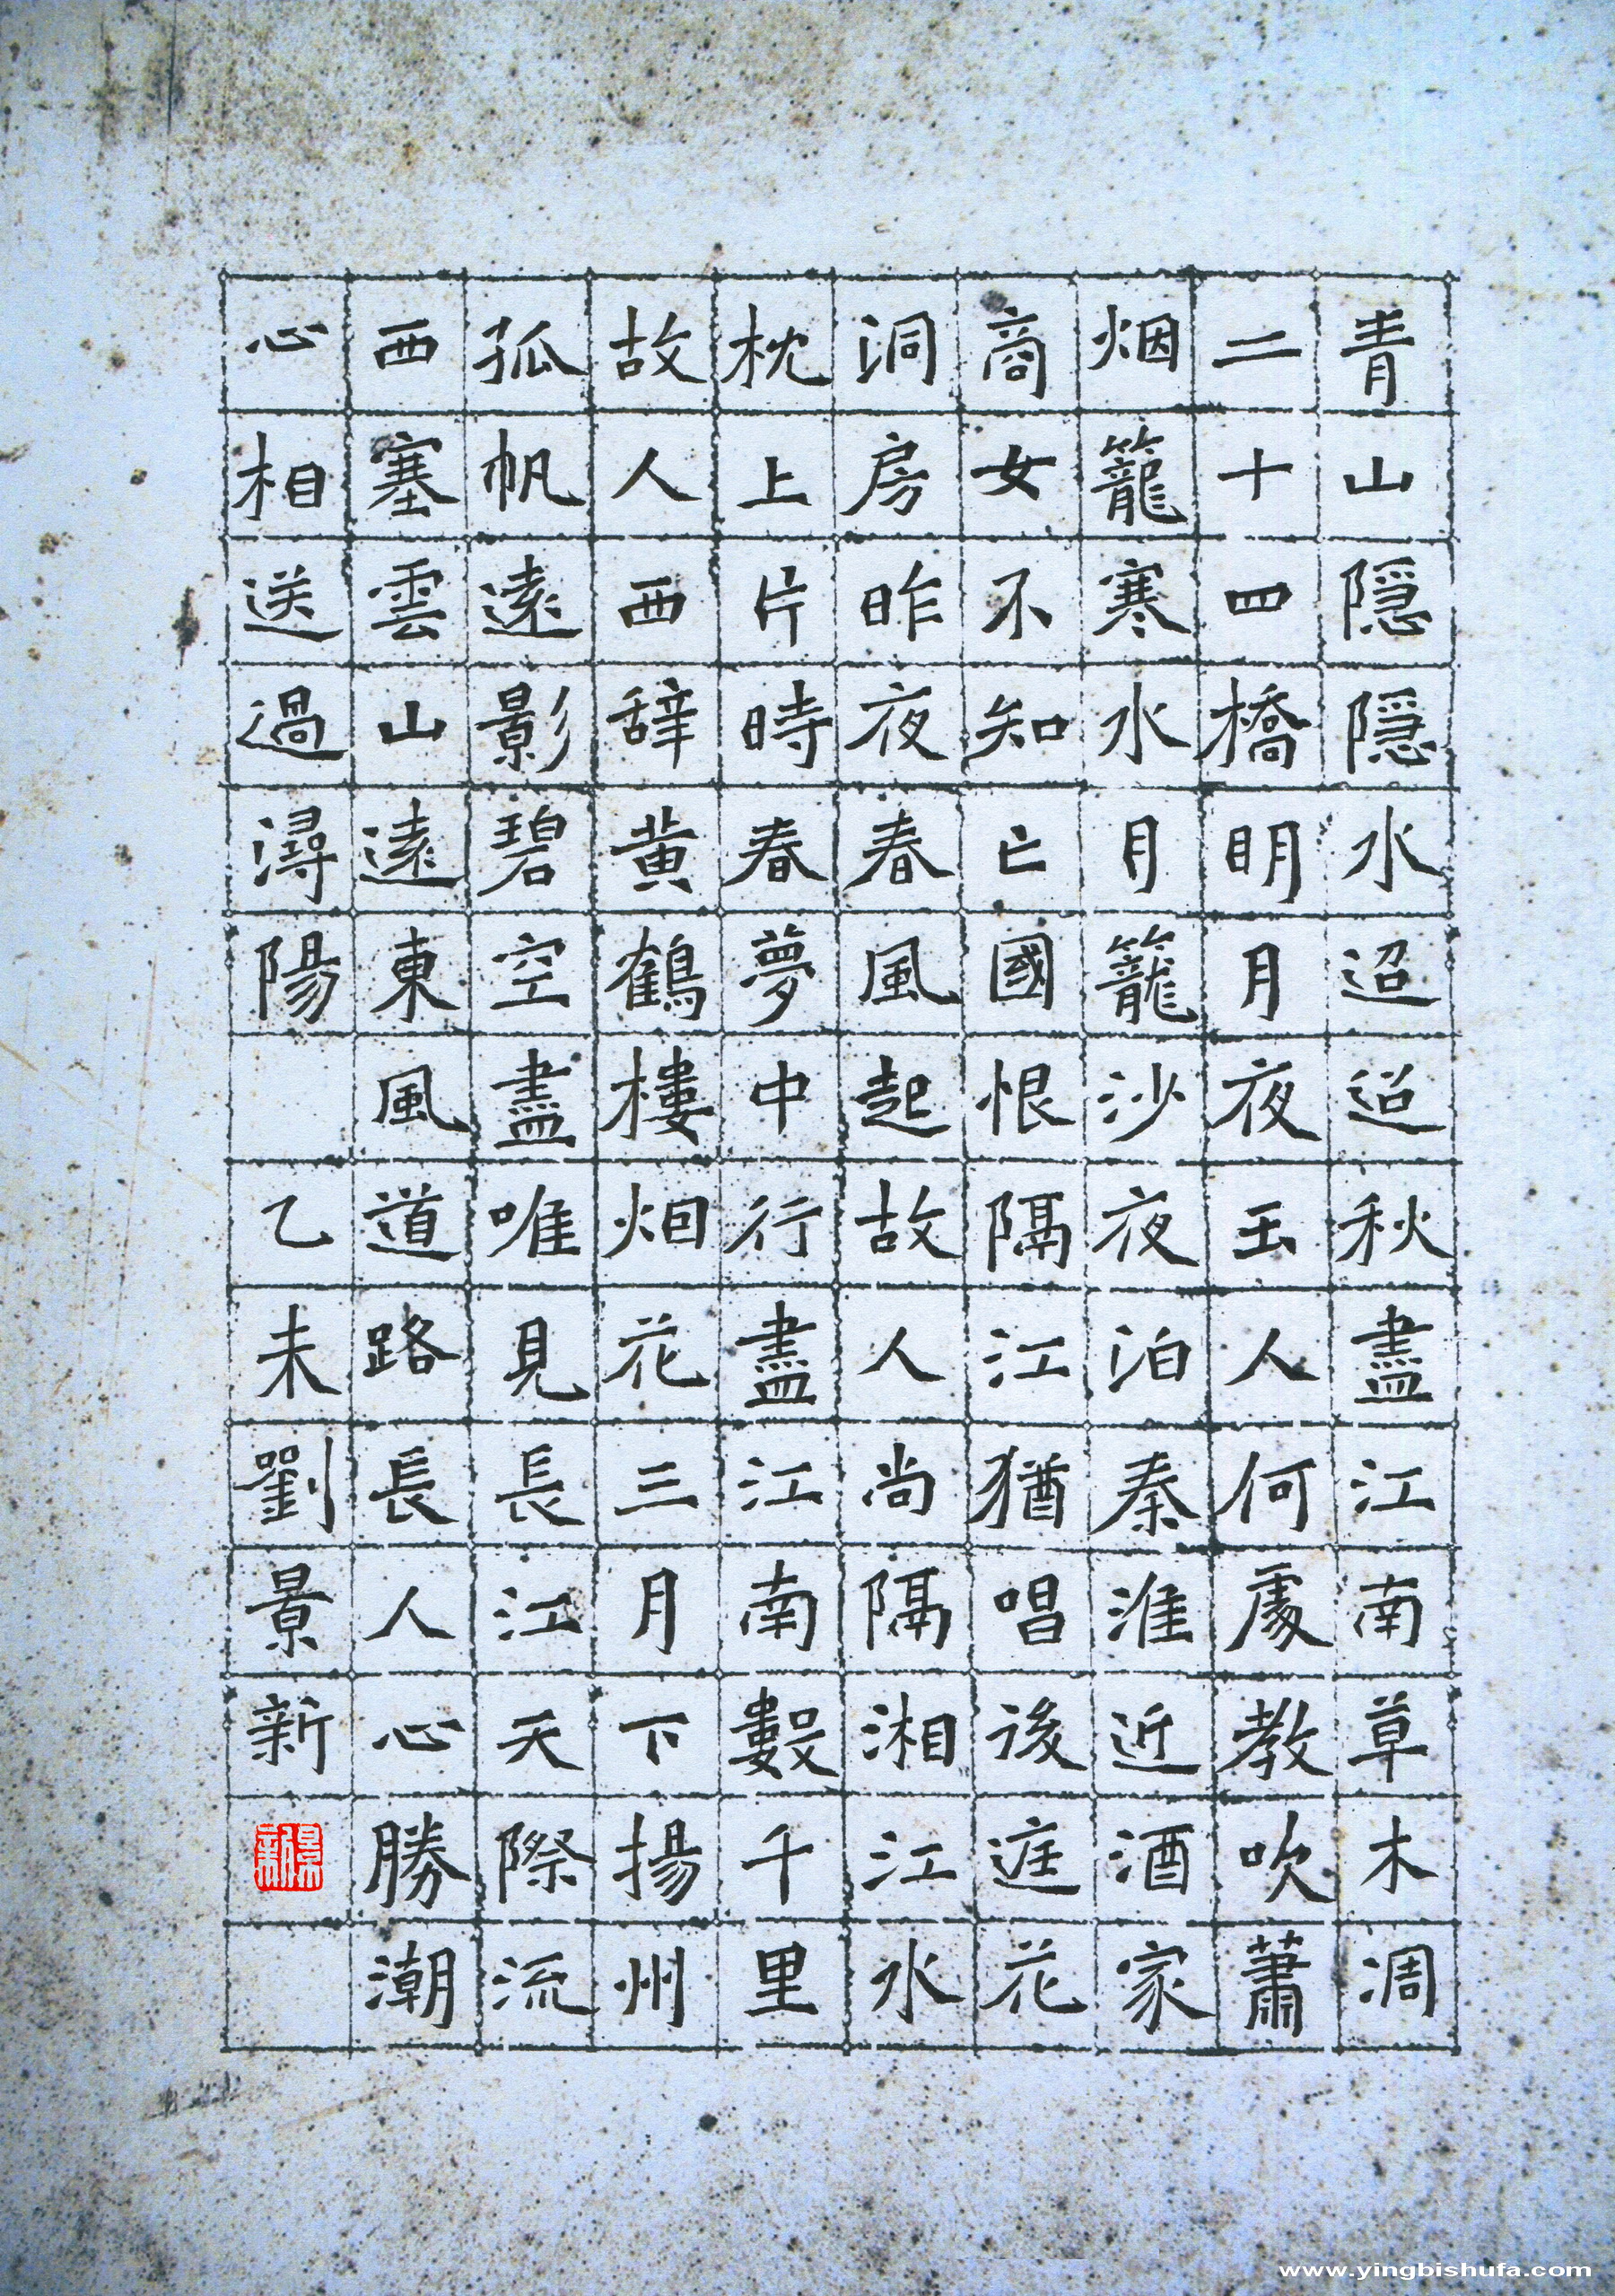 青山隱隱水迢迢秋盡江南草木凋
二十四橋明月夜玉人何處教吹蕭
烟籠寒水月籠沙夜泊秦淮近酒家
商女不知亡國恨隔江猶唱後庭花
洞房昨夜春風起故人尚隔湘江水
枕上片時春夢中行盡江南數千里
故人西辞黄鶴樓烟花三月下揚州
孤帆遠影碧空盡唯見長江天際流
西塞雲山遠東風道路長人心勝潮
心相送過潯陽 乙未劉景新
景新
www.yingbishufa.com